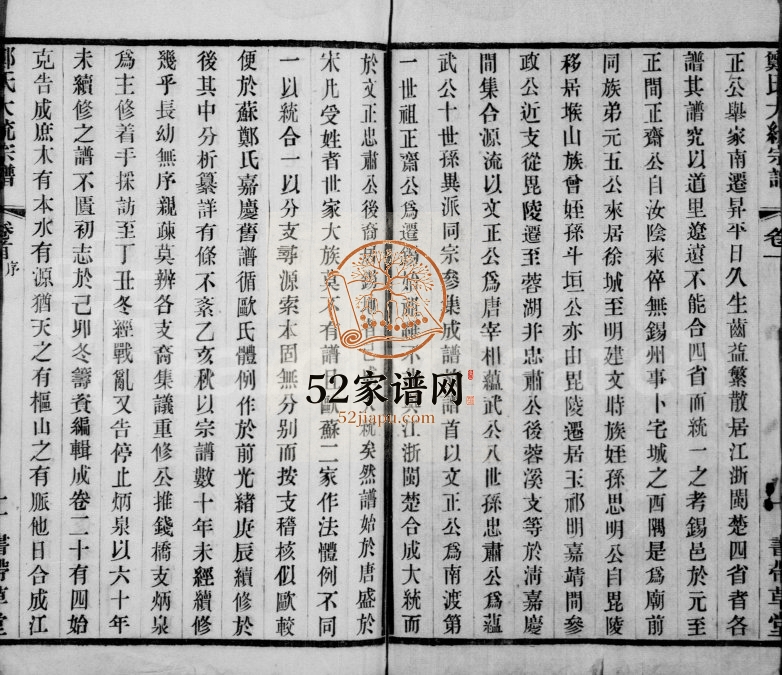 鄭氏大統宗譜
卷一
書帶草堂
正公舉家南遷昇平日久生齒益繁散居江浙閩楚四省者各
譜其譜究以道里遼遠不能合四省而統一之考錫邑於元至
正間正齋公自汝陰來倅無錫州事卜宅城之西隅是爲廟前
同族弟元五公來居徐城至明建文時族姪孫思明公自毘陵
移居堠山族曾姪孫斗垣公亦由毘陵遷居玉祁明嘉靖間參
政公近支從毘陵遷至蓉湖幷忠肅公後蓉溪支等於淸嘉慶
間集合源流以文正公爲唐宰相蘊武公八世孫忠肅公爲蘊
武公十世孫異派同宗參集成譜譜首以文正公爲南渡第
一世祖正齋公爲遷錫始祖雖不江浙閩楚合成大統而
於文正忠肅公後裔居錫地者已成大統矣然譜始於唐盛於
宋凡受姓者世家大族莫不有譜但歐蘇二家作法體例不同
一以統合一以分支尋源索本固無分別而按支稽核似歐較
便於蘇鄭氏嘉慶舊譜循歐氏體例作於前光緒庚辰續修於
後其中分析纂詳有條不紊乙亥秋以宗譜數十年未經續修
幾乎長幼無序親疎莫辨各支裔集議重修公推錢橋支炳泉
爲主修着手採訪至丁丑冬經戰亂又告停止炳泉以六十年
未續修之譜不匱初志於己卯冬籌資編輯成卷二十有四始
克告成庶木有本水有源猶天之有樞山之有脈他日合成江
鄭氏大統宗譜
卷首序
二
書帶草堂
52家谱网
52jiapu.com